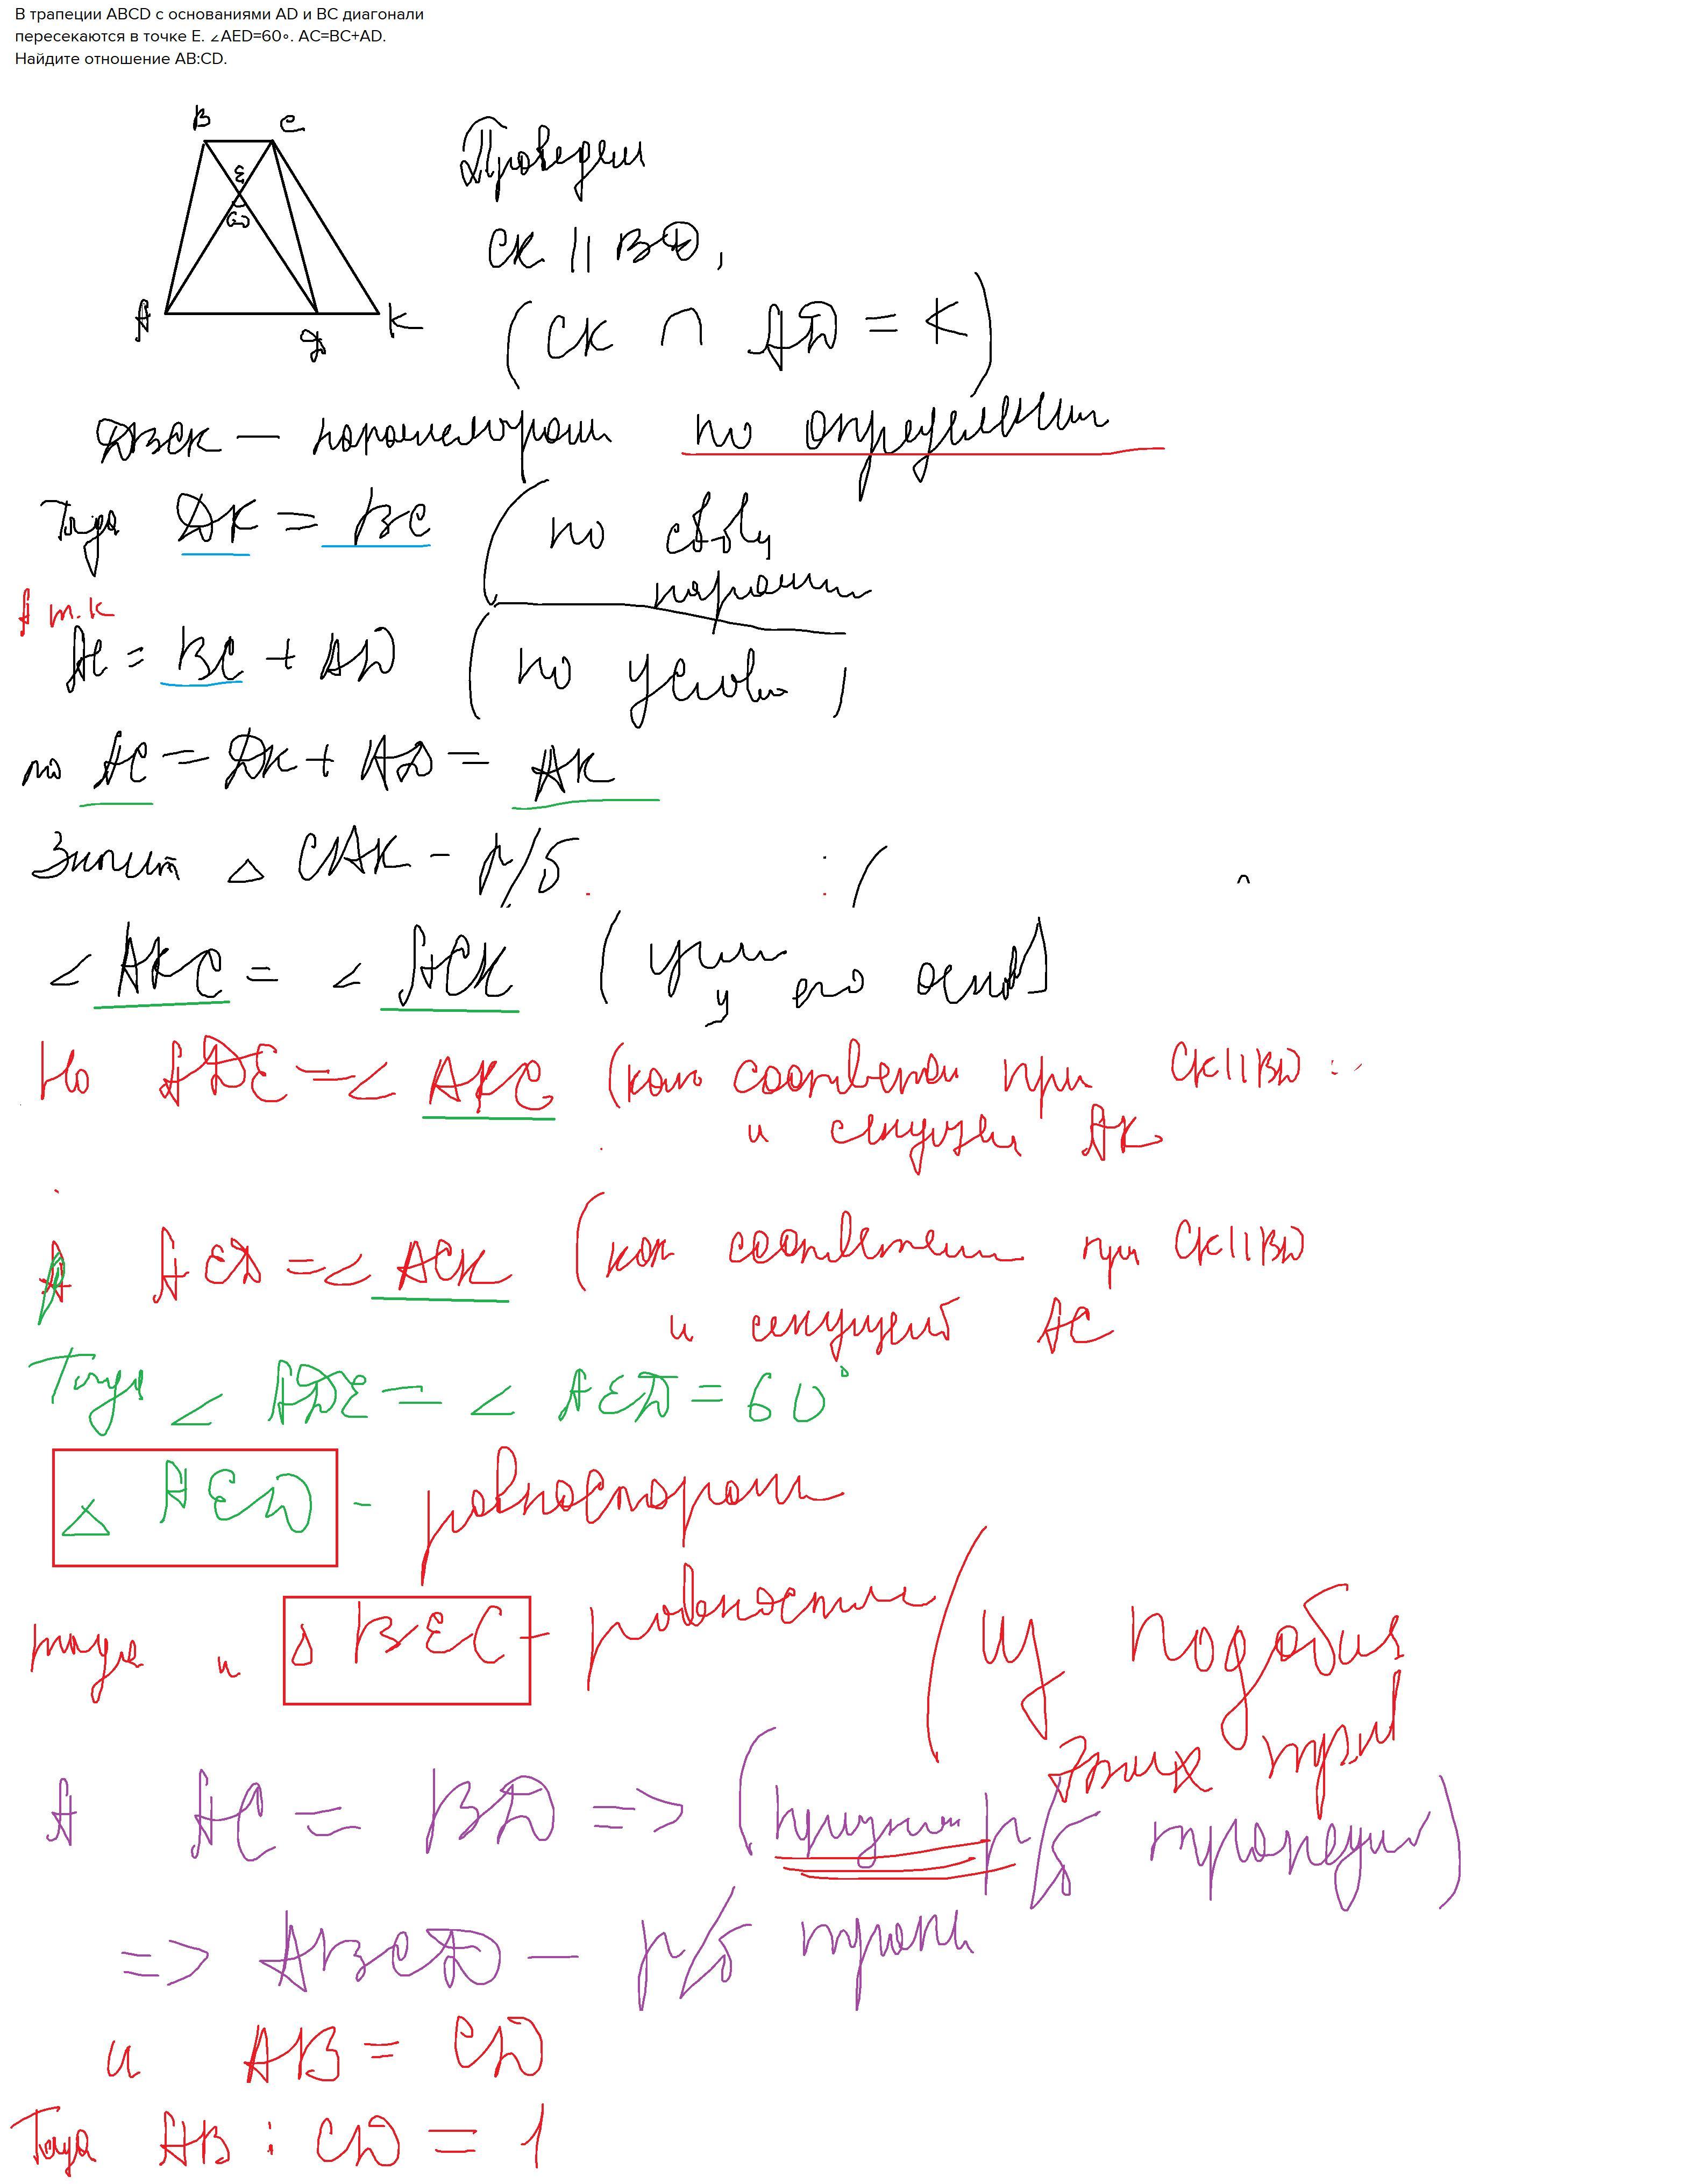 В трапеции ABCD с основаниями AD и BC диагонали
пересекаются в точке E. ∠AED=60∘. AC=BC+AD.
Найдите отношение AB:CD.
B C
E
60
A D K
Проведем
CK || BD,
(CK ∩ AD = K)
DBCK — параллелограмм по определению
Тогда DK = BC (по св-ву
паралл
А т.к
AC = BC + AD (по условию)
то AC = DK + AD = AK
Значит △ CAK - р/б.
∠ AKC = ∠ ACK (углы у его основ)
Но ADE = ∠ AKC (как соответств при CK || BD
и секущей AK
А AED = ∠ ACK (как соответствен при CK || BD
и секущей AC
Тогда ∠ ADE = ∠ AED = 60°
△ AED - равносторон
тогда и △ BEC - равностор (из подобия
этих треуг
А AC = BD => (признак р/б трапеции)
=> ABCD — р/б трап
и AB = CD
Тогда AB : CD = 1